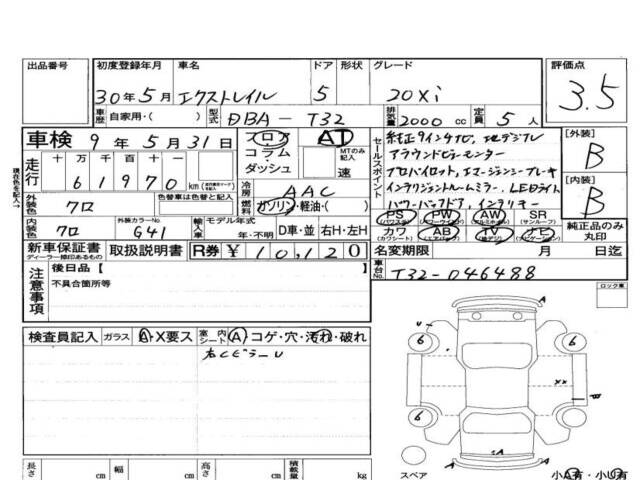 出品番号 初度登録年月 車名 ドア 形状 グレード 評価点
30年5月 エクストレイル 5 20Xi 3.5
車歴 自家用・( ) 型式 DBA-T32 排気量 2000 cc 定員 5 人
車検 9年5月31日 フロア コラム ダッシュ AT MTのみ記入 速
走行 十万千百十 61970 km
セールスポイント
純正9インチナビ、地デジTV
アラウンドビューモニター
プロパイロット、エマージェンシーブレーキ
インテリジェントルームミラー、LEDライト
パワーバックドア、インテリキー
[外装] B
[内装] B
現在色を記入→
外装色 クロ 色替車は色替と記入 冷房 AAC
燃料 ガソリン・軽油・( )
内装色 クロ 外装カラーNo. G41 輸入車 モデル年式 年・不明 D車・並 右H・左H
PS (パワステ) PW (パワーウインドウ) AW (アルミホイール) SR (サンルーフ)
カワ (カワシート) AB (エアバック) TV (地デジ) ナビ (ナビゲーション)
純正品のみ丸印
新車保証書 ディーラー捺印あるもの 取扱説明書 R券 ¥10,120
名変期限 月 日迄
車台No. T32-046488
注意事項 後日品[ ]
不具合箇所等
ロック車
検査員記入 ガラス A・X要ス 室内シート A・コゲ・穴・汚れ・破れ
A
6 6
6 6
XX
A
スペア 小A有・小U有
長さ cm 幅 cm 高さ cm 積載量 kg